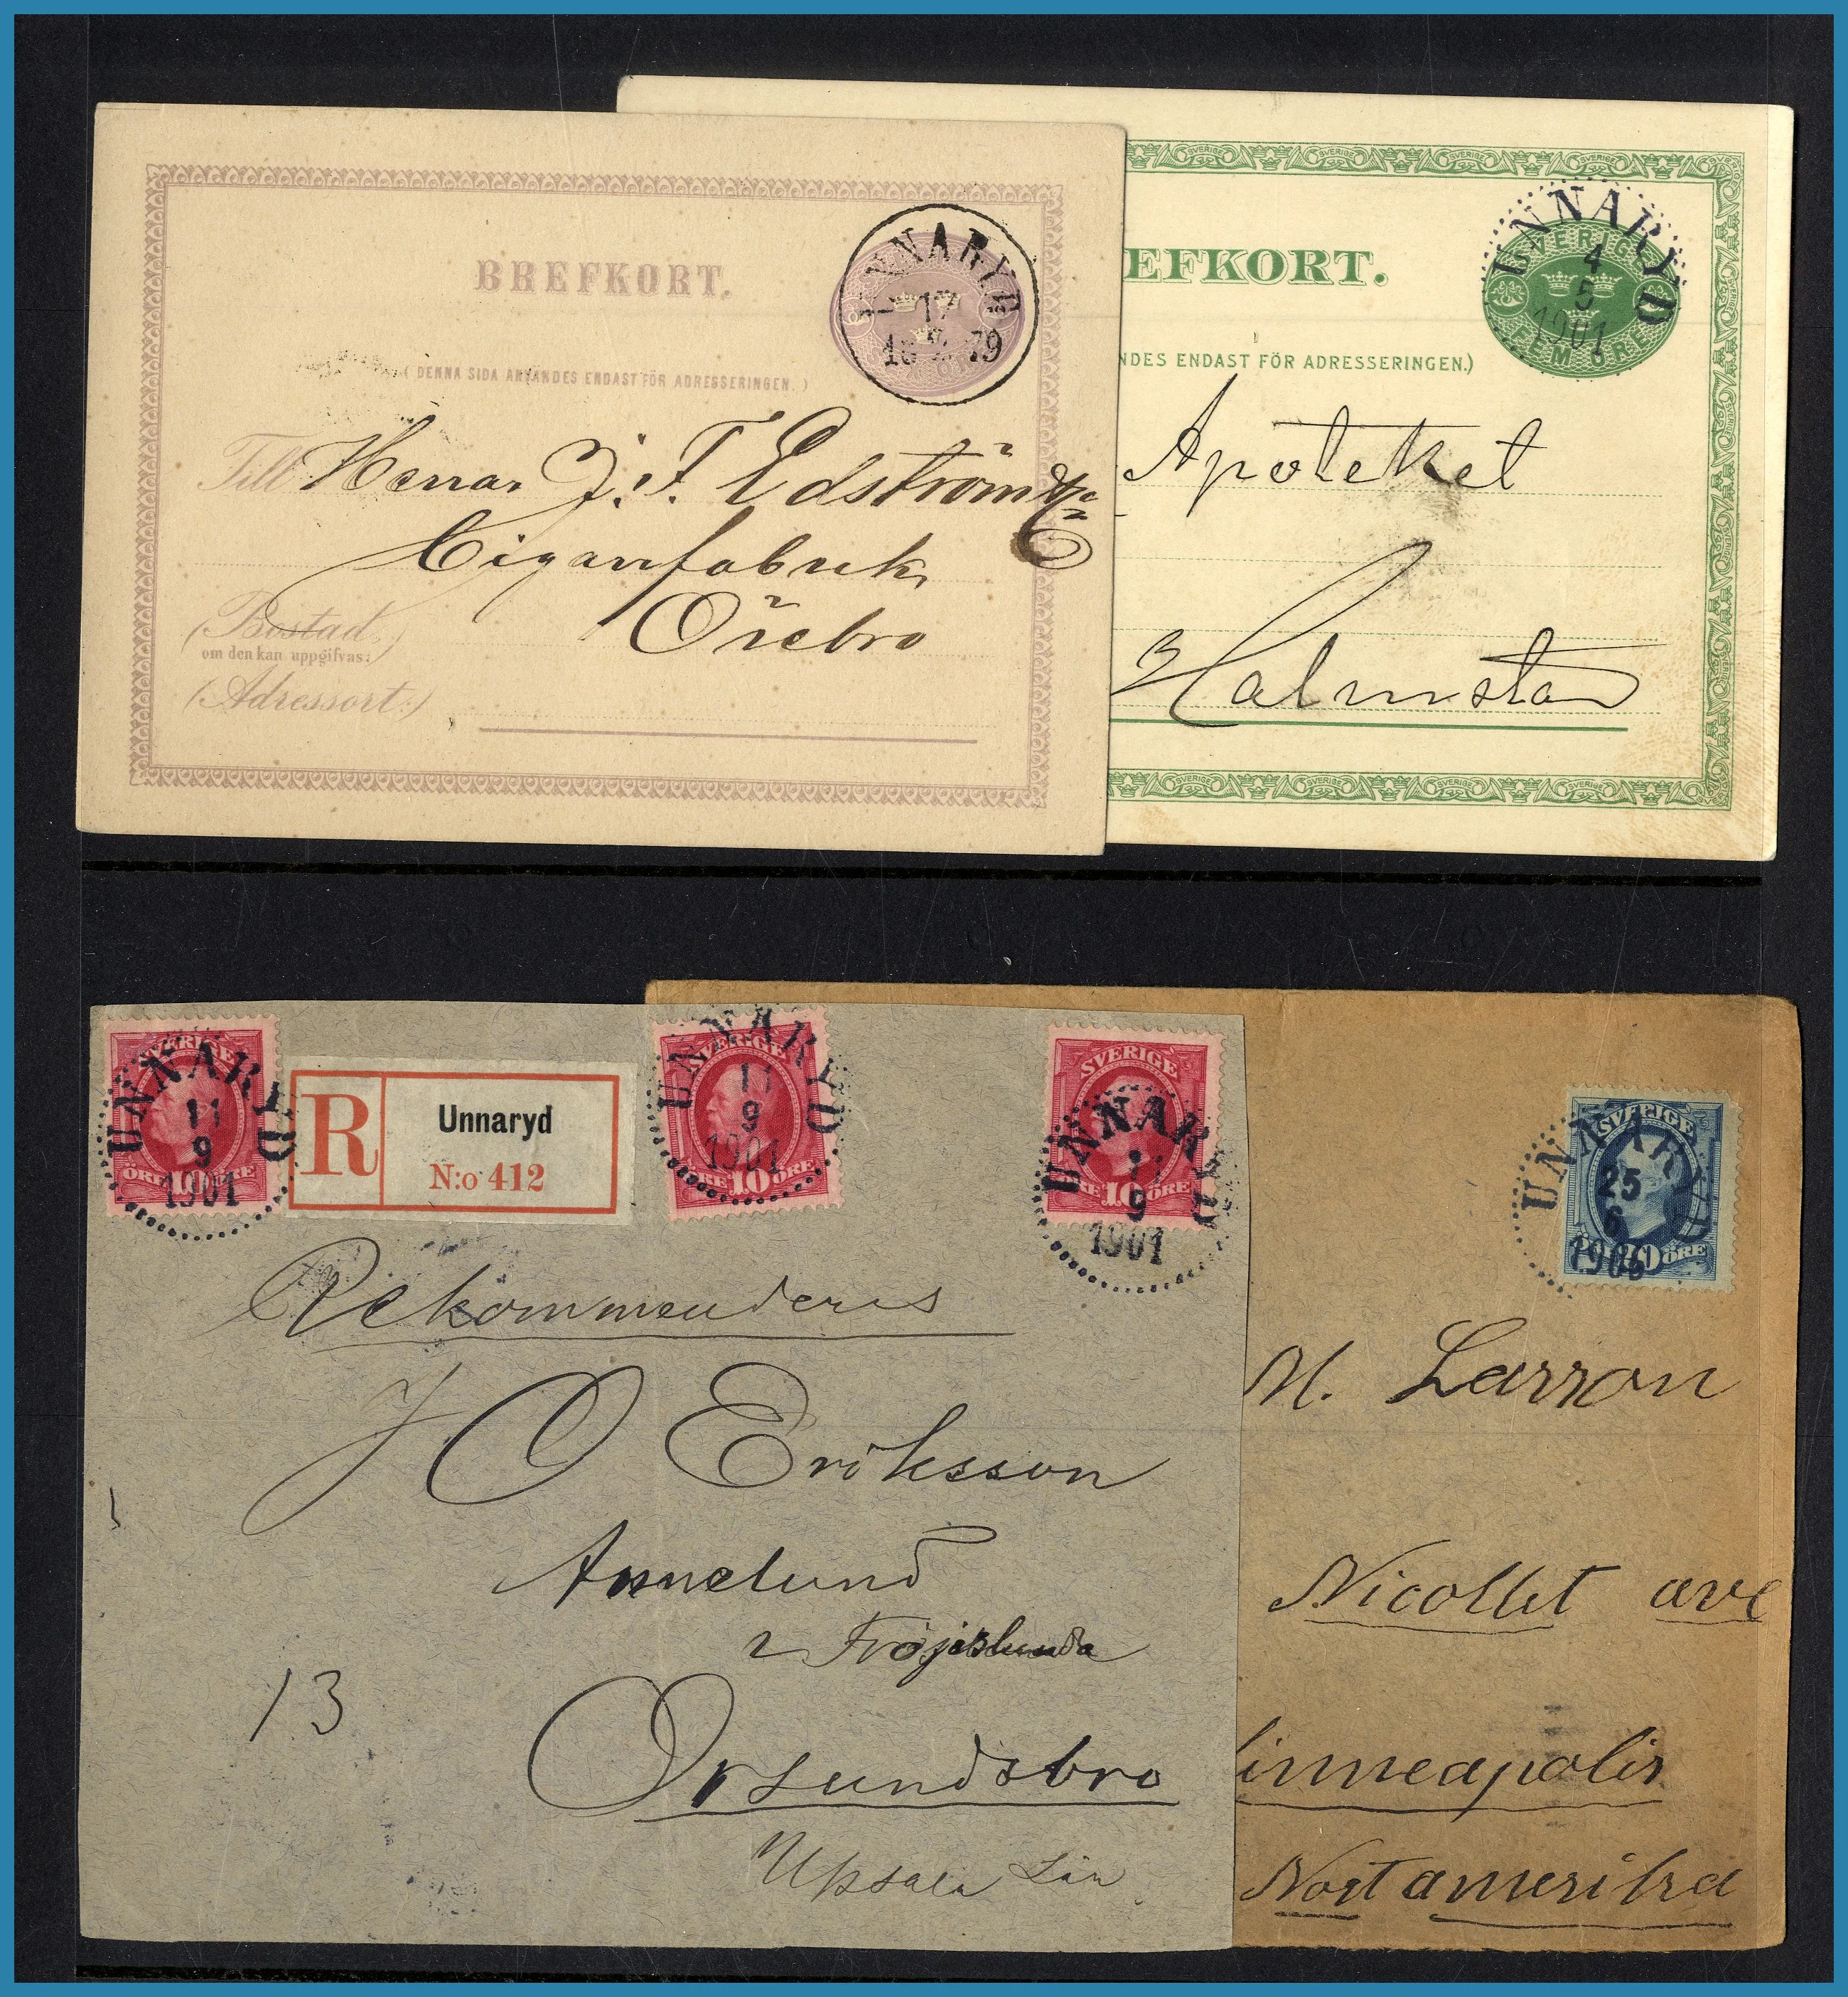 BREFKORT.
UNNARYD
17
18 79
( DENNA SIDA ANVÄNDES ENDAST FÖR ADRESSERINGEN. )
Till Herrar J. F. Edström & Co
Cigarrfabrik
Örebro
(Bostad,
om den kan uppgifvas:)
(Adressort:)
EFKORT.
SVERIGE
FEM ÖRE
UNNARYD
4
5
1901
NDES ENDAST FÖR ADRESSERINGEN.)
Apoteket
Halmstad
SVERIGE
10
ÖRE
UNNARYD
11
9
1901
R
Unnaryd
N:o 412
SVERIGE
10 ÖRE
UNNARYD
11
9
1901
SVERIGE
ÖRE 10 ÖRE
UNNARYD
11
9
1901
Rekommenderas
J O Eriksson
Annelund
Fröjslunda
Orsundsbro
Upsala Län
13
SVERIGE
20 ÖRE
UNNARYD
25
6
1906
M. Larson
Nicollet ave
inneapolis
Nort amerika